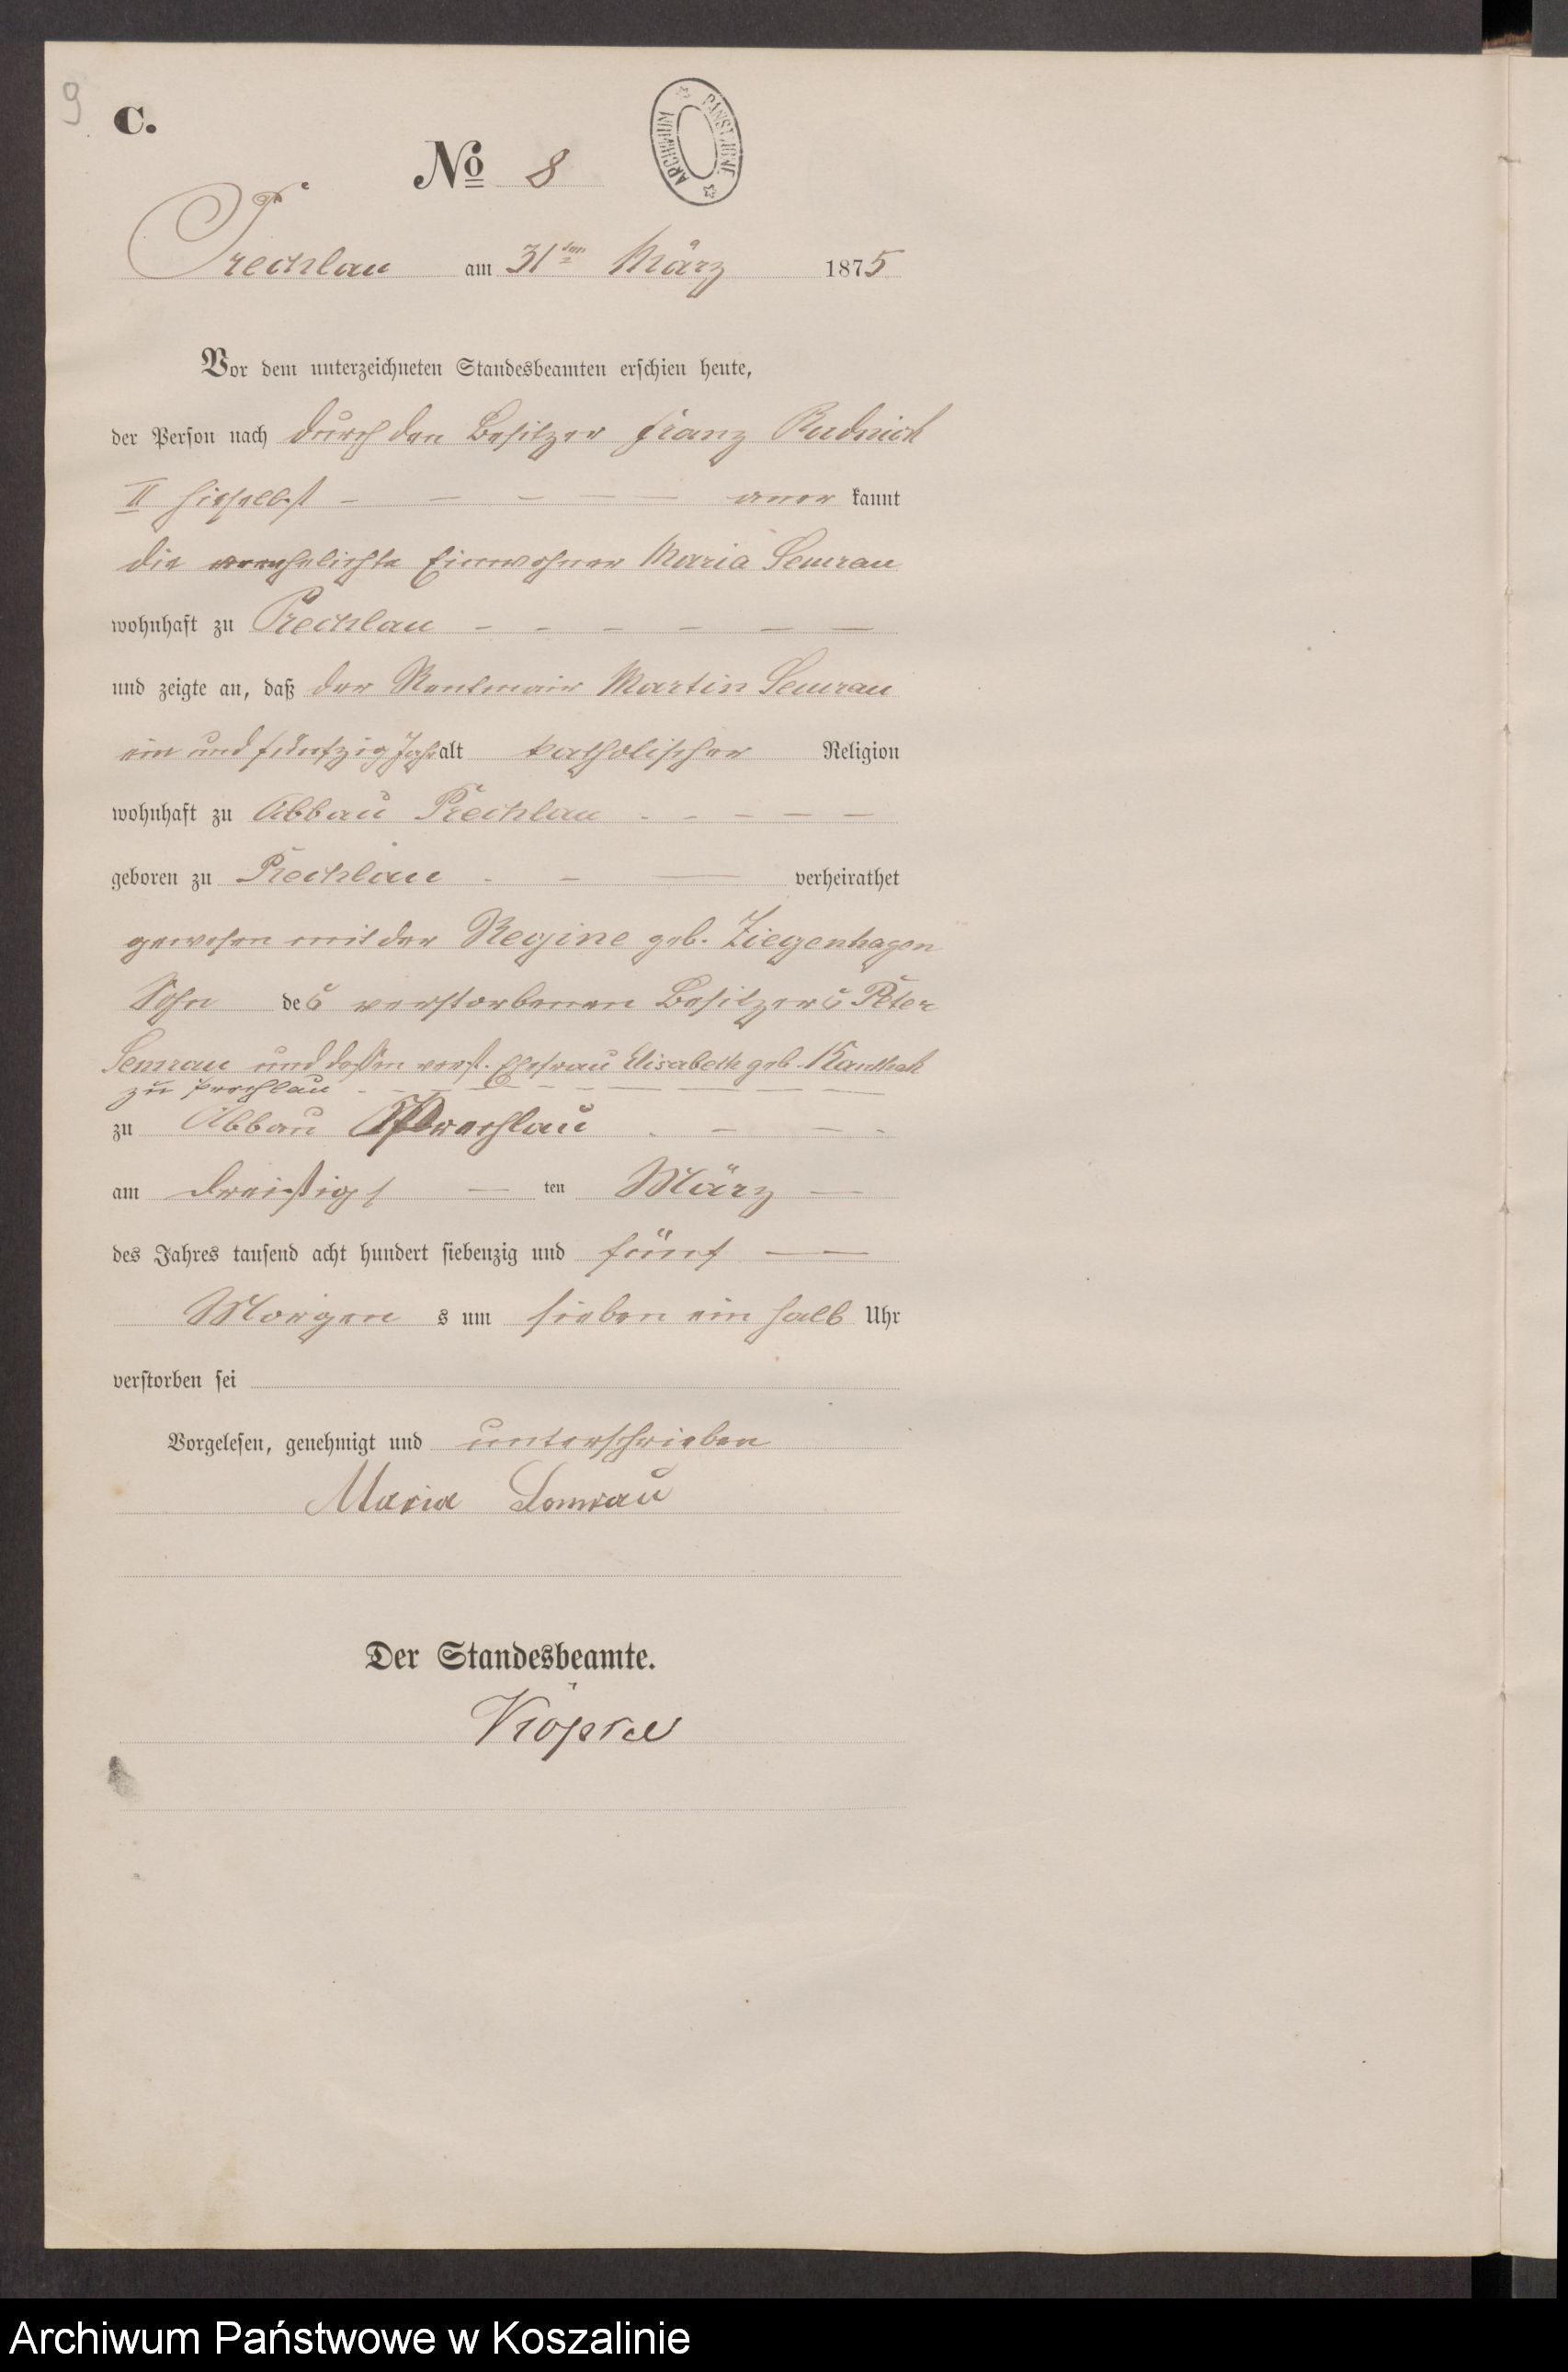 9
C.
No 8
ARCHIWUM PAŃSTWOWE
Prechlau am 31ten März 1875
Vor dem unterzeichneten Standesbeamten erschien heute,
der Person nach durch den Besitzer Franz Rudnick
II hieselbst - - - - - aner kannt
die verehelichte Einwohner Maria Semrau
wohnhaft zu Prechlau - - - - - -
und zeigte an, daß der Martin Semrau
ein und fünfzig Jahr alt katholischer Religion
wohnhaft zu Abbau Prechlau - - - - -
geboren zu Prechlau - - - verheirathet
gewesen mit der Regine geb. Ziegenhagen
Sohn des verstorbenen Besitzers Peter
Semrau und dessen verst. Ehefrau Elisabeth geb.
zu Prechlau - - - - - - - -
zu Abbau Prechlau - - - -
am dreißigs — ten März —
des Jahres tausend acht hundert siebenzig und fünf — —
Morgen s um sieben ein halb Uhr
verstorben sei
Vorgelesen, genehmigt und unterschrieben
Maria Semrau
Der Standesbeamte.
Archiwum Państwowe w Koszalinie